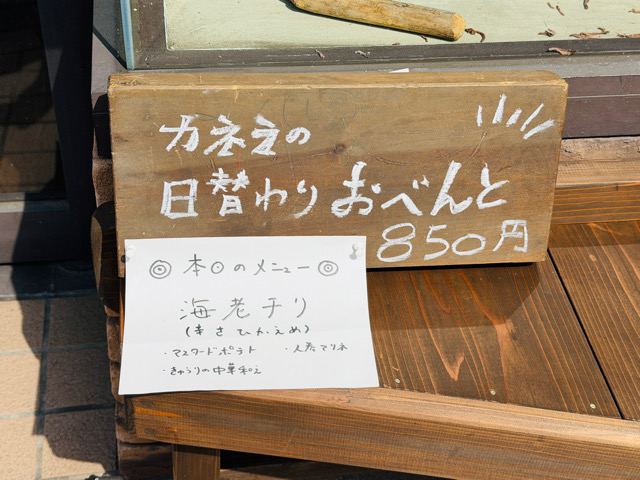 カネえの
日替わりおべんと
850円
◎ 本日のメニュー ◎
海老チリ
(辛さひかえめ)
・マスタードポテト ・人参マリネ
・きゅうりの中華和え